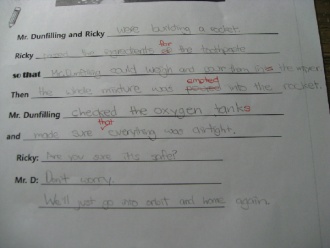 Mr. Dunfilling and Ricky were building a rocket.
Ricky the ingredients of for the toothpaste
so that Mr. Dunfilling could weigh and pour them into the mixer.
Then the whole mixture was emptied into the rocket.
Mr. Dunfilling checked the oxygen tanks
and made sure that everything was airtight.
Ricky: Are you sure it's safe?
Mr. D: Don't worry.
We'll just go into orbit and home again.